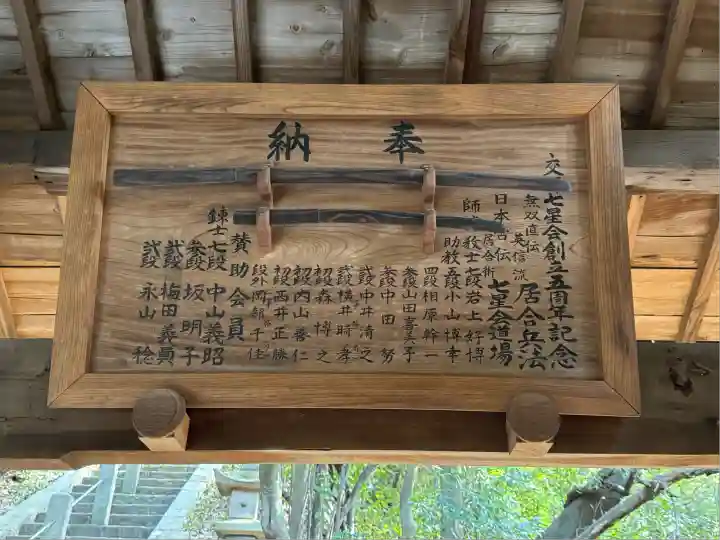 奉納
七星会創立五周年記念
無双直伝英信流
居合兵法
日本古伝居合術
七星会道場
師 教士七段岩上好博
助教 五段小山博幸
四段相原幹一
参段山田喜美子
参段中田努
弐段中井清之
弐段横井時孝
初段森博之
初段内山善仁
初段西井正勝
段外岡部千佳
賛助会員
錬士七段中山義昭
参段坂明子
弐段梅田義眞
弐段永山稔